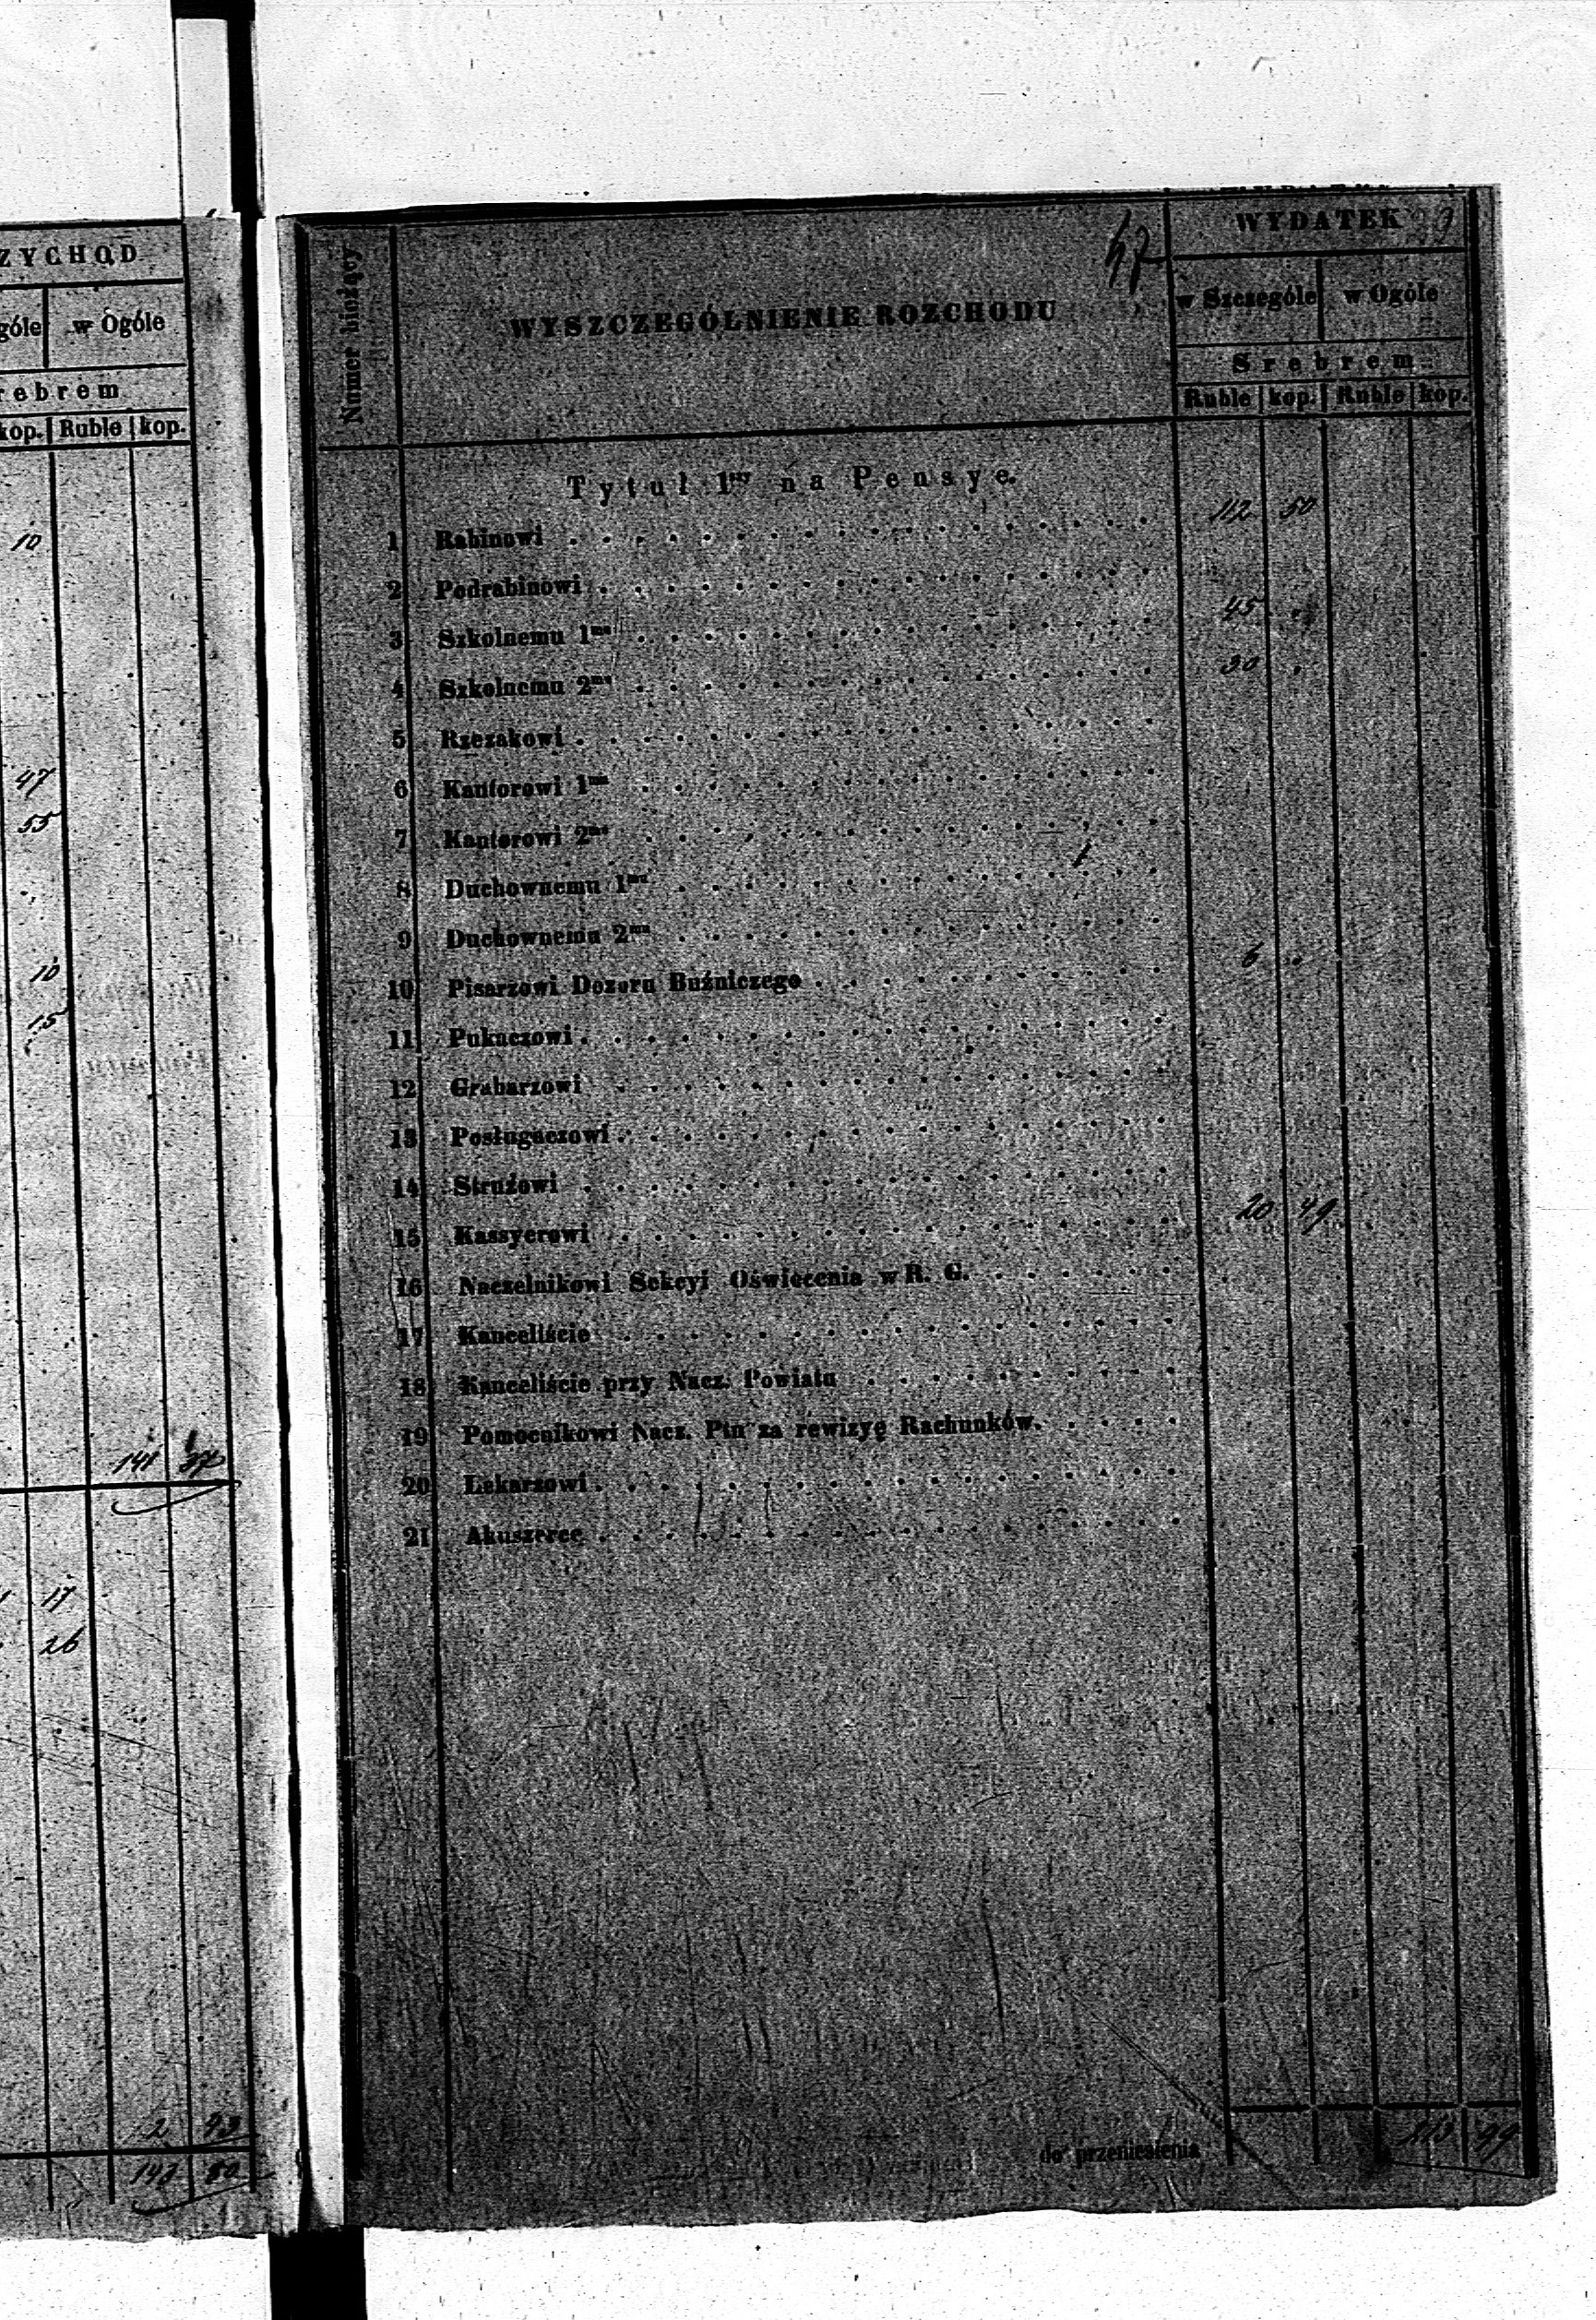 ZYCHOD
góle w Ogóle
rebrem
kop. Ruble kop.
10
47
55
10
15
141 37
17
26
2 43
143 80
47
WYDATEK
Numer bieżący
WYSZCZEGÓLNIENIE ROZCHODU
w Szczególe w Ogóle
Srebrem
Ruble kop. Ruble kop.
Tytuł 1ny na Pensye.
1 Rabinowi 112 50
2 Podrabinowi
3 Szkolnemu 1mu 45 .
4 Szkolnemu 2mu 30 .
5 Rzezakowi
6 Kantorowi 1mu
7 Kantorowi 2mu
8 Duchownemu 1mu
9 Duchownemu 2mu
10 Pisarzowi Dozoru Buźniczego 6 .
11 Pukaczowi
12 Grabarzowi
13 Posługaczowi
14 Stružowi
15 Kassyerowi 20 49
16 Naczelnikowi Sekcyi Oświecenia w R. G.
17 Kanceliście
18 Kanceliście przy Nacz. Powiatu
19 Pomocnikowi Nacz. Ptu za rewizyę Rachunków.
20 Lekarzowi
21 Akuszerce
do przeniesienia 213 99